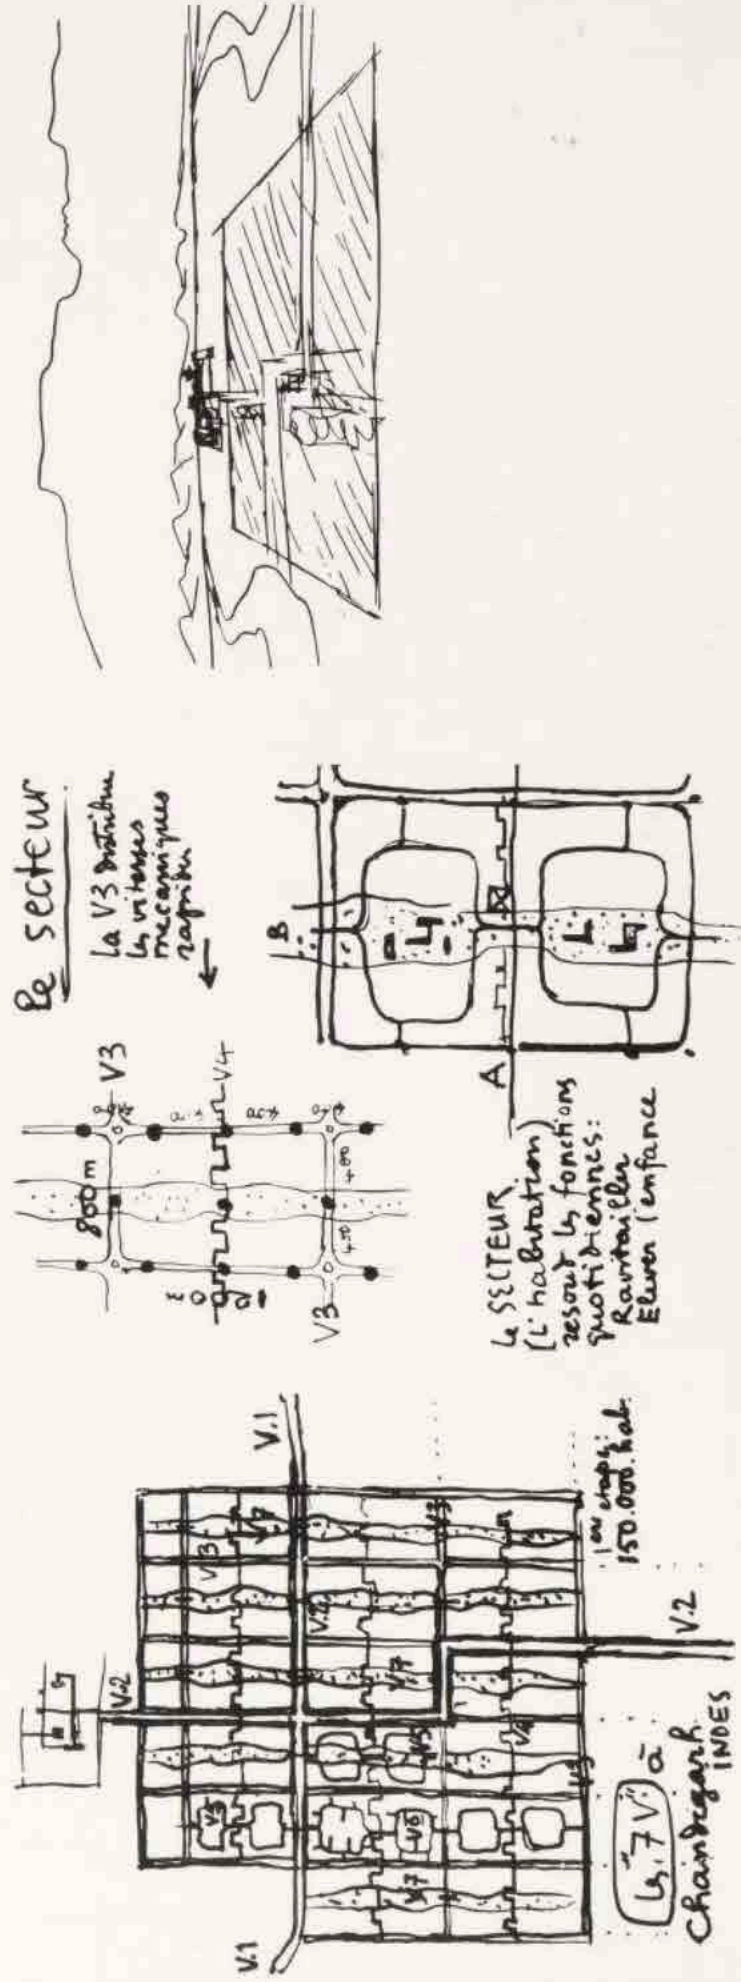 Le secteur
La V3 distribue
les vitesses
mécaniques
rapides
V3
800m
V4
400
400
V3
B
A
Le SECTEUR
(L'habitation)
résout les fonctions
quotidiennes:
Ravitailler
Elever l'enfance
V.2
V.1
V3
V7
V.2
V3
V7
V5
V4
V5
V6
V7
V3
V.1
V.2
1ère étape:
150.000. hab.
Les "7V" à
Chandigarh
INDES